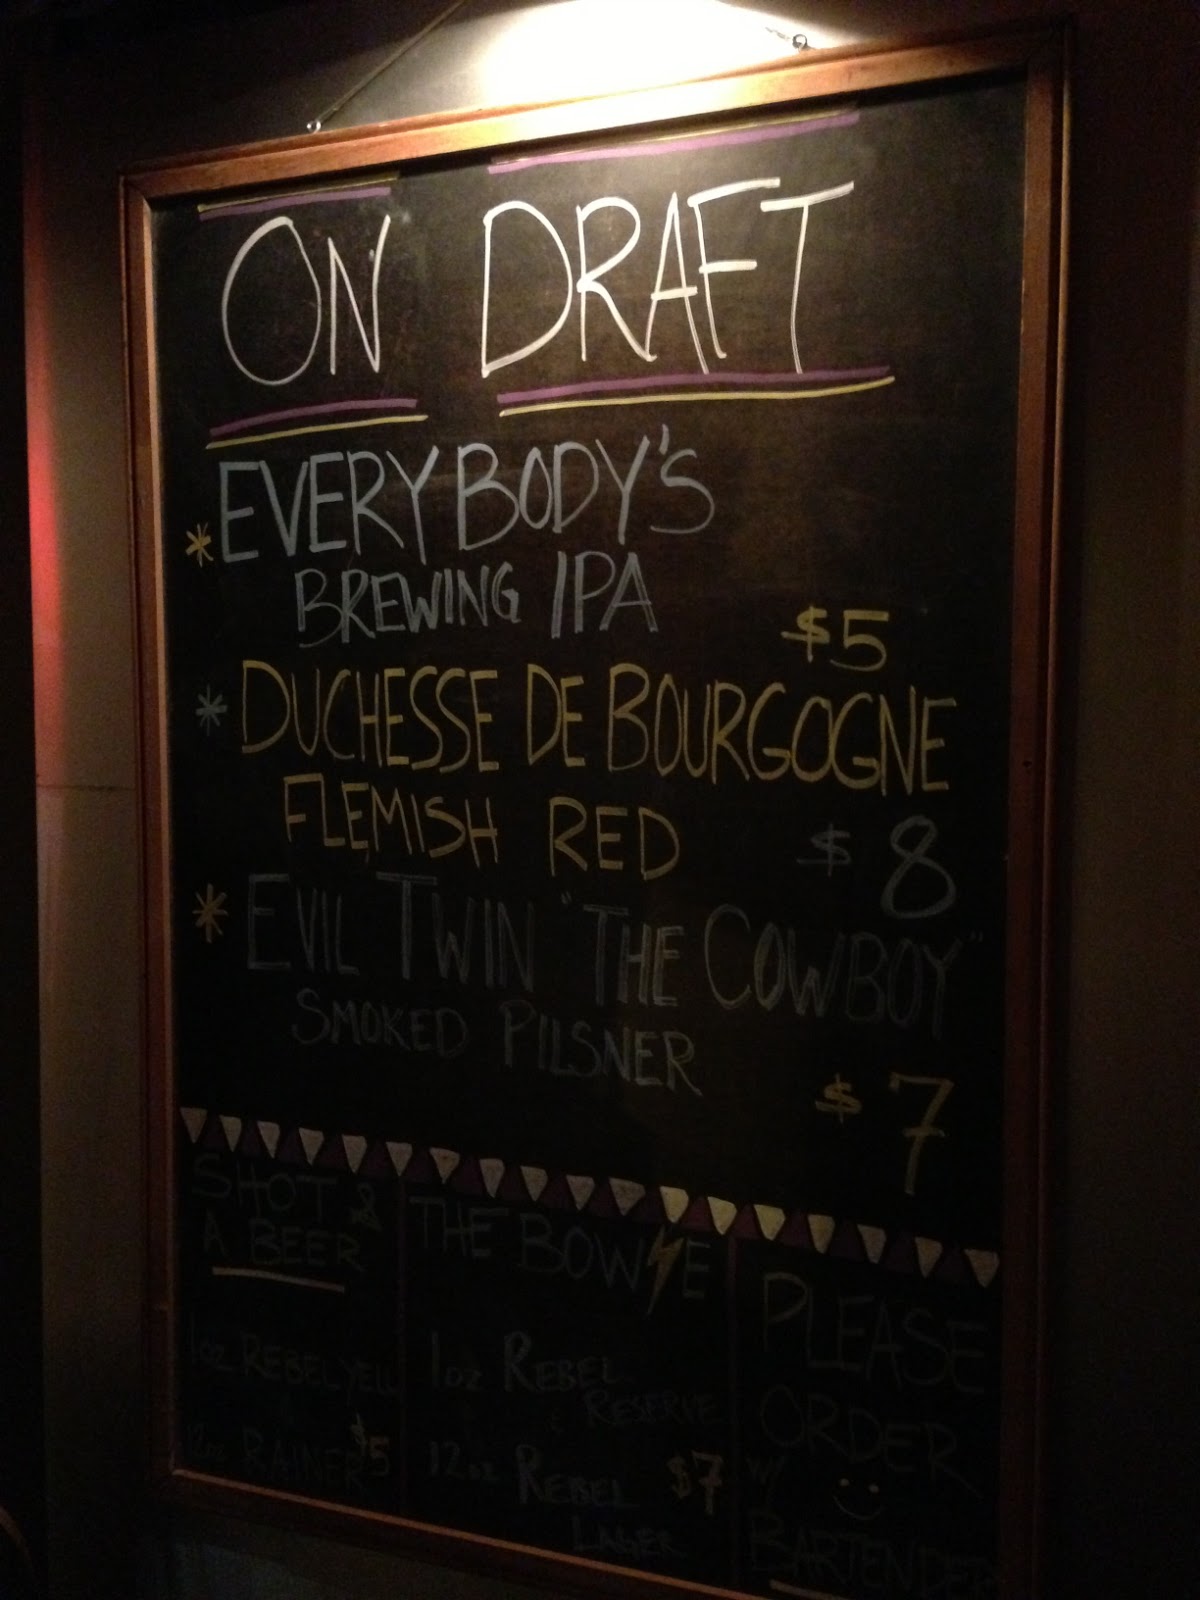 ON DRAFT
* EVERYBODY'S
BREWING IPA
$5
* DUCHESSE DE BOURGOGNE
FLEMISH RED
$8
* EVIL TWIN "THE COWBOY"
SMOKED PILSNER
$7
SHOT &
A BEER
1oz REBEL YELL
12oz RAINER $5
THE BOW⚡E
1oz REBEL
RESERVE
&
12oz REBEL $7
LAGER
PLEASE
ORDER
W/
BARTENDER